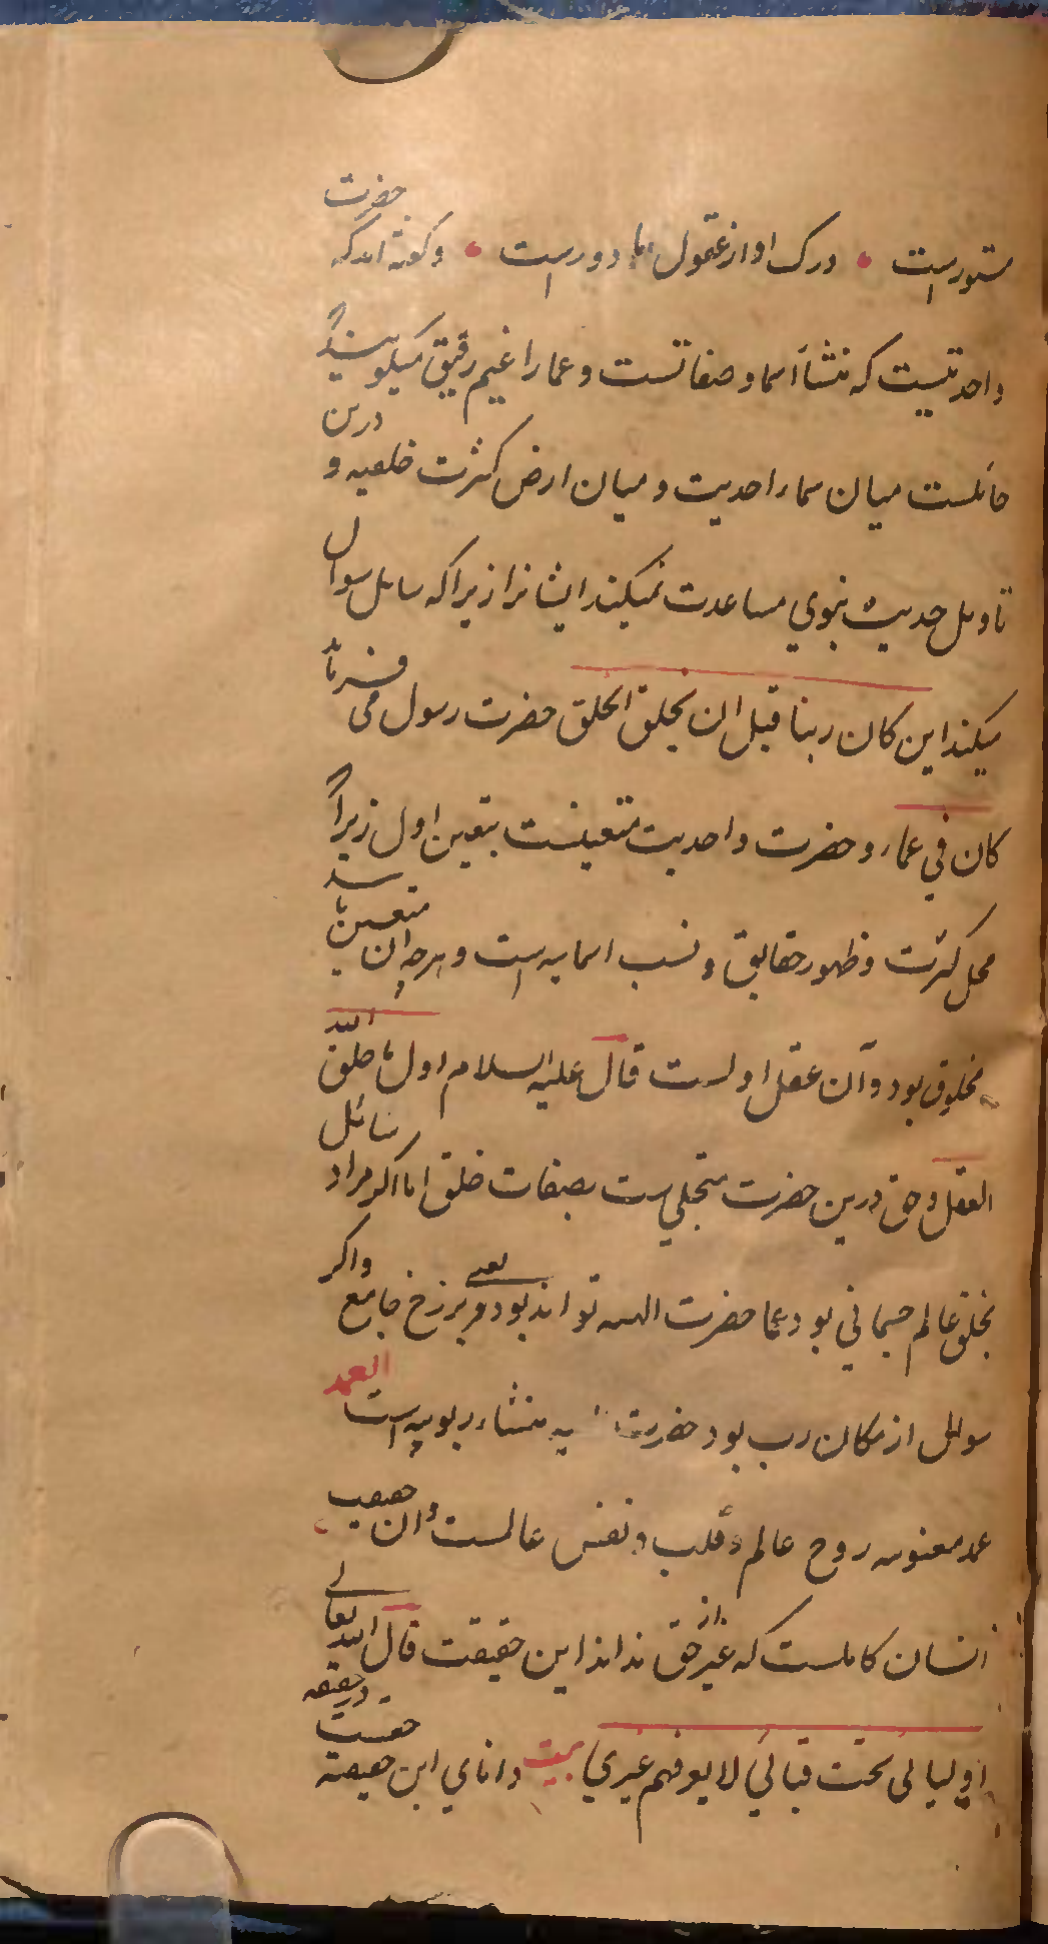 مستور است • درک او از عقول ما دور است • و گفته اند که حضرت
واحدیتست که منشأ اسما و صفاتست و عما را غیم رقیق میگویند که
حائلست میان سماء احدیت و میان ارض کثرت خلقیه و درین
تاویل حدیث نبوی مساعدت نمیکند ایشانرا زیرا که سایل سوال
میکند این کان ربنا قبل ان یخلق الخلق حضرت رسول می فرماید
کان فی عماء و حضرت واحدیت متعینست بتعین اول زیرا که
محل کثرت و ظهور حقایق و نسب اسمایه است و هرچه آن متعین باشد
مخلوق بود و آن عقل اولست قال علیه السلام اول ما خلق الله
العقل و حق درین حضرت متجلیست بصفات خلق اما اگر مراد سائل
بخلق عالم جسمانی بود عما حضرت الهیه تواند بود یعنی برزخ جامع و اگر
سوال از مکان رب بود حضرت منشاء ربوبیه است العمد
عمد معنویه روح عالم و قلب و نفس عالمست و آن حقیقت
انسان کاملست که غیر از حق نداند این حقیقت قال الله تعالی
اولیائی تحت قبائی لا یعرفهم غیری بیت دانای این حقیقت